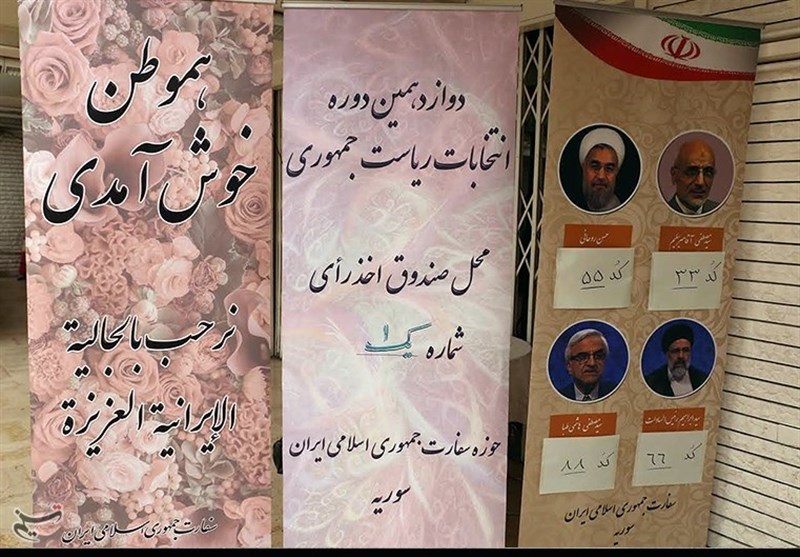 هموطن
خوش آمدی
نرحب بالجالية
الإيرانية العزيزة
سفارت جمهوری اسلامی ایران
تسنیم
دوازدهمین دوره
انتخابات ریاست جمهوری
محل صندوق اخذ رأی
شماره یک ۱
حوزه سفارت جمهوری اسلامی ایران
سوریه
سید مصطفی آقامیرسلیم
کد ۳۳
حسن روحانی
کد ۵۵
سید ابراهیم رئیس الساداتی
کد ۶۶
سید مصطفی هاشمی طبا
کد ۸۸
سفارت جمهوری اسلامی ایران
سوریه